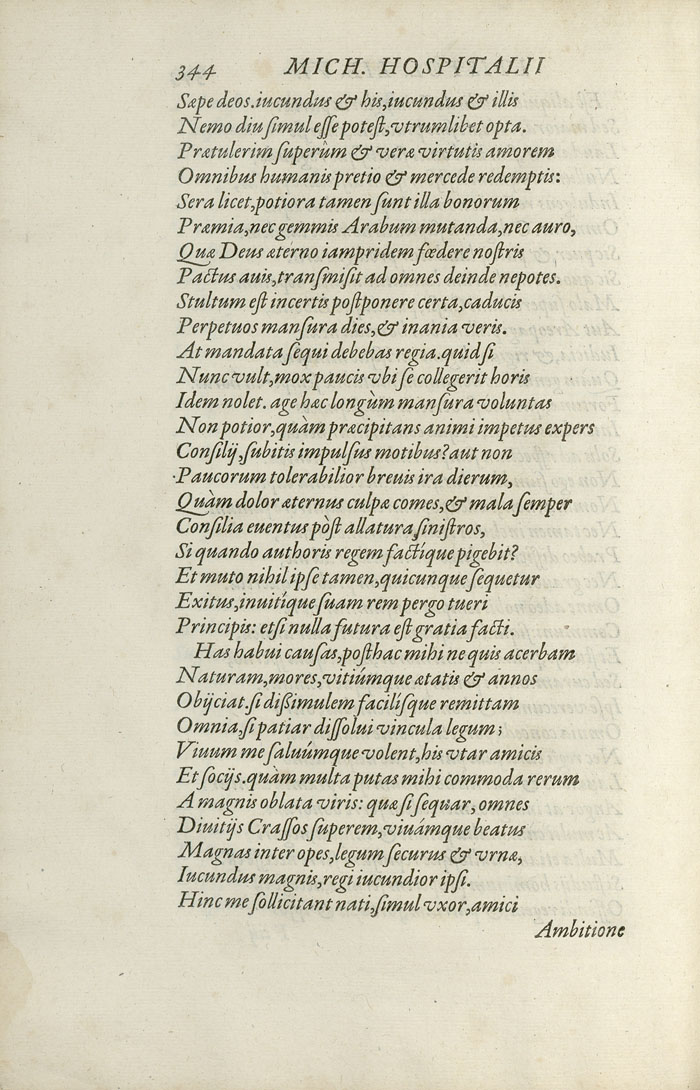 344 MICH. HOSPITALII
Sæpe deos.iucundus & his,iucundus & illis
Nemo diu ſimul eſſe poteſt,vtrumlibet opta.
Prætulerim ſuperûm & veræ virtutis amorem
Omnibus humanis pretio & mercede redemptis:
Sera licet,potiora tamen ſunt illa bonorum
Præmia,nec gemmis Arabum mutanda,nec auro,
Quæ Deus æterno iampridem fœdere noſtris
Pactus auis,tranſmiſit ad omnes deinde nepotes.
Stultum eſt incertis poſtponere certa,caducis
Perpetuos manſura dies,& inania veris.
At mandata ſequi debebas regia.quid ſi
Nunc vult,mox paucis vbi ſe collegerit horis
Idem nolet. age hæc longùm manſura voluntas
Non potior,quàm præcipitans animi impetus expers
Conſilij,ſubitis impulſus motibus?aut non
Paucorum tolerabilior breuis ira dierum,
Quàm dolor æternus culpæ comes,& mala ſemper
Conſilia euentus pòſt allatura ſiniſtros,
Si quando authoris regem factíque pigebit?
Et muto nihil ipſe tamen,quicunque ſequetur
Exitus,inuitíque ſuam rem pergo tueri
Principis: etſi nulla futura eſt gratia facti.
Has habui cauſas,poſthac mihi ne quis acerbam
Naturam,mores,vitiúmque ætatis & annos
Obijciat.ſi dißimulem facilíſque remittam
Omnia,ſi patiar diſſolui vincula legum;
Viuum me ſaluúmque volent,his vtar amicis
Et ſocijs.quàm multa putas mihi commoda rerum
A magnis oblata viris: quæ ſi ſequar, omnes
Diuitijs Craſſos ſuperem,viuámque beatus
Magnas inter opes,legum ſecurus & vrnæ,
Iucundus magnis,regi iucundior ipſi.
Hinc me ſollicitant nati,ſimul vxor,amici
Ambitione